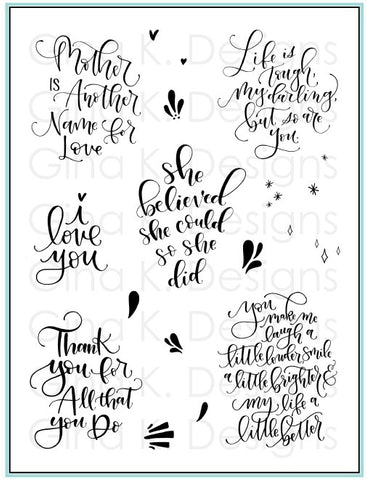 Mother
is Another
Name for
Love
Life is
tough,
my darling,
but so are
you.
she
believed
she could
so she
did
i
love
you
Thank
you for
All that
you Do
you
make me
laugh a
little louder smile
a little brighter &
my life a
little better
Gina K. Designs
Gina K. Designs
Gina K. Designs
Gina K. Designs
Gina K. Designs
Gina K. Designs